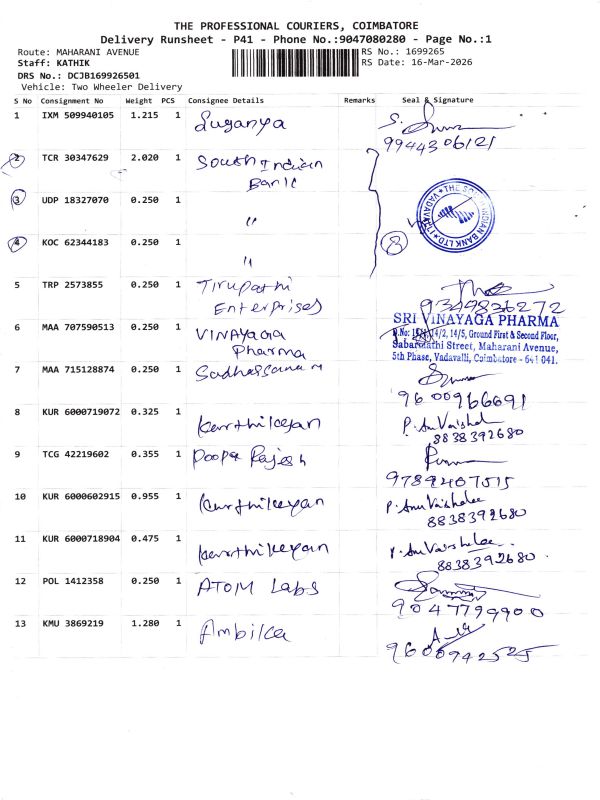 THE PROFESSIONAL COURIERS, COIMBATORE
Delivery Runsheet - P41 - Phone No.:9047080280 - Page No.:1
Route: MAHARANI AVENUE RS No.: 1699265
Staff: KATHIK RS Date: 16-Mar-2026
DRS No.: DCJB169926501
Vehicle: Two Wheeler Delivery
S No Consignment No Weight PCS Consignee Details Remarks Seal & Signature
1 IXM 509940105 1.215 1 Suganya S.
9944306121
2 TCR 30347629 2.020 1 South Indian
Bank
3 UDP 18327070 0.250 1 "
4 KOC 62344183 0.250 1 "
8
5 TRP 2573855 0.250 1 Tirupathi
Enterprises 9349836272
6 MAA 707590513 0.250 1 VINAYAGA
Pharma
SRI VINAYAGA PHARMA
Ground First & Second Floor,
Sabarmathi Street, Maharani Avenue,
5th Phase, Vadavalli, Coimbatore - 641 041.
7 MAA 715128874 0.250 1
9600966691
8 KUR 6000719072 0.325 1 Karthikeyan
8838392680
9 TCG 42219602 0.355 1 Poopa Rajesh
9789407515
10 KUR 6000602915 0.955 1 Karthikeyan
8838392680
11 KUR 6000718904 0.475 1 Karthikeyan
8838392680
12 POL 1412358 0.250 1 ATOM Labs
9047799900
13 KMU 3869219 1.280 1 Ambika
9600942525